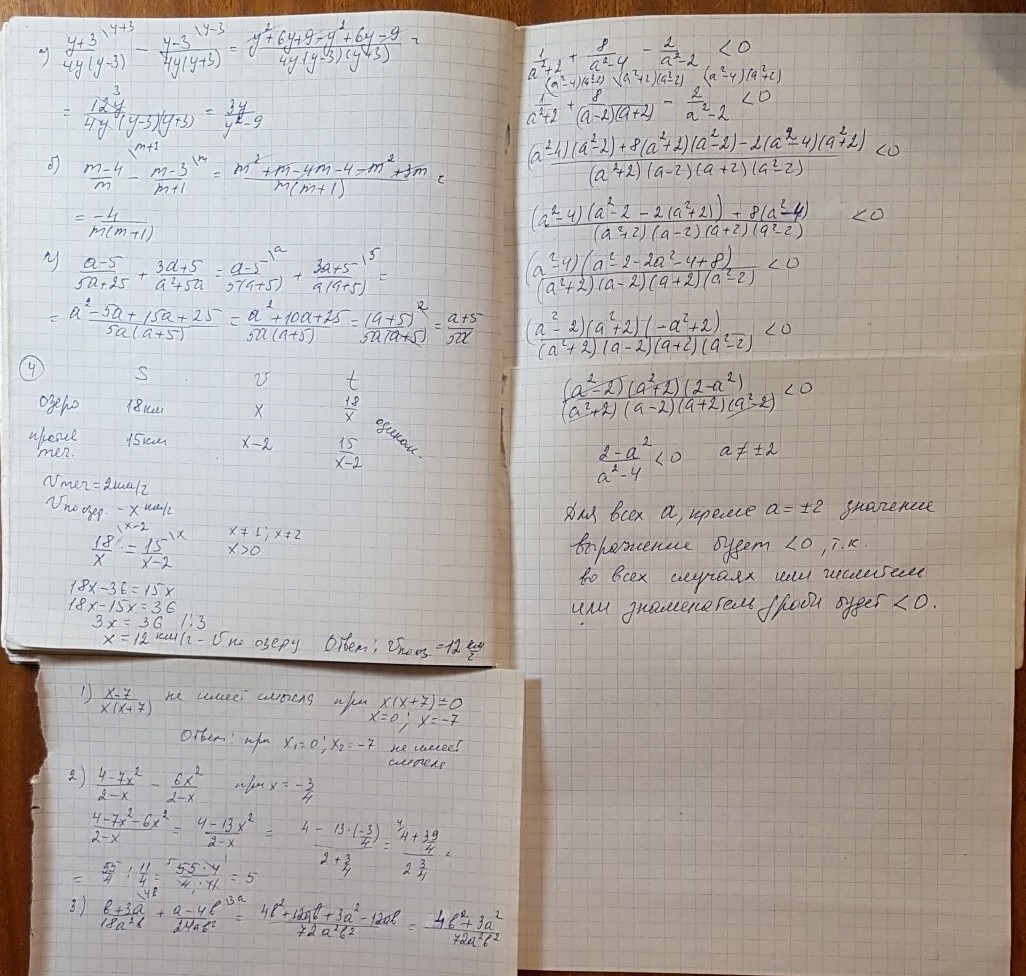 а) (y+3)/(4y(y-3)) \y+3 - (y-3)/(4y(y+3)) \y-3 = (y²+6y+9-y²+6y-9)/(4y(y-3)(y+3)) =
= 12y/(4y(y-3)(y+3)) = 3y/(y²-9)
б) (m-4)/m \m+1 - (m-3)/(m+1) \m = (m²+m-4m-4-m²+3m)/(m(m+1)) =
= -4/(m(m+1))
(a-5)/(5a+25) + (3a+5)/(a²+5a) = (a-5)/(5(a+5)) \a + (3a+5)/(a(a+5)) \5 =
= (a²-5a+15a+25)/(5a(a+5)) = (a²+10a+25)/(5a(a+5)) = (a+5)²/(5a(a+5)) = (a+5)/5a
4 S v t
озеро 18км x 18/x
против теч. 15км x-2 15/(x-2) одинак.
Vтеч = 2км/г
Vпо озер. - x км/г
18/x \x-2 = 15/(x-2) \x x≠1; x≠2
x>0
18x-36=15x
18x-15x=36
3x=36 |:3
x=12 км/г - V по озеру Ответ: Vпо оз. =12 км/г
1) (x-7)/(x(x+7)) не имеет смысла при x(x+7)=0
x=0; x=-7
Ответ: при x₁=0; x₂=-7 не имеет
смысла
2) (4-7x²)/(2-x) - 6x²/(2-x) при x=-3/4
(4-7x²-6x²)/(2-x) = (4-13x²)/(2-x) = (4-13·(-3/4))/(2+3/4) = (4+39/4)/(2 3/4) =
= 55/4 : 11/4 = (55·4)/(4·11) = 5
3) (b+3a)/(18a²b) \4b + (a-4b)/(24ab²) \3a = (4b²+12ab+3a²-12ab)/(72a²b²) = (4b²+3a²)/(72a²b²)
1/(a²+2) + 8/(a²-4) - 2/(a²-2) <0
(a²-4)(a²-2) (a²+2)(a²-2) (a²-4)(a²+2)
1/(a²+2) + 8/((a-2)(a+2)) - 2/(a²-2) <0
((a²-4)(a²-2)+8(a²+2)(a²-2)-2(a²-4)(a²+2))/((a²+2)(a-2)(a+2)(a²-2)) <0
((a²-4)(a²-2-2(a²+2))+8(a²-4))/((a²+2)(a-2)(a+2)(a²-2)) <0
((a²-4)(a²-2-2a²-4+8))/((a²+2)(a-2)(a+2)(a²-2)) <0
((a²-2)(a²+2)(-a²+2))/((a²+2)(a-2)(a+2)(a²-2)) <0
((a²-2)(a²+2)(2-a²))/((a²+2)(a-2)(a+2)(a²-2)) <0
(2-a²)/(a²-4) <0 a≠±2
Для всех a, кроме a=±2 значение
выражение будет <0, т.к.
во всех случаях или числители
или знаменатель дроби будет <0.